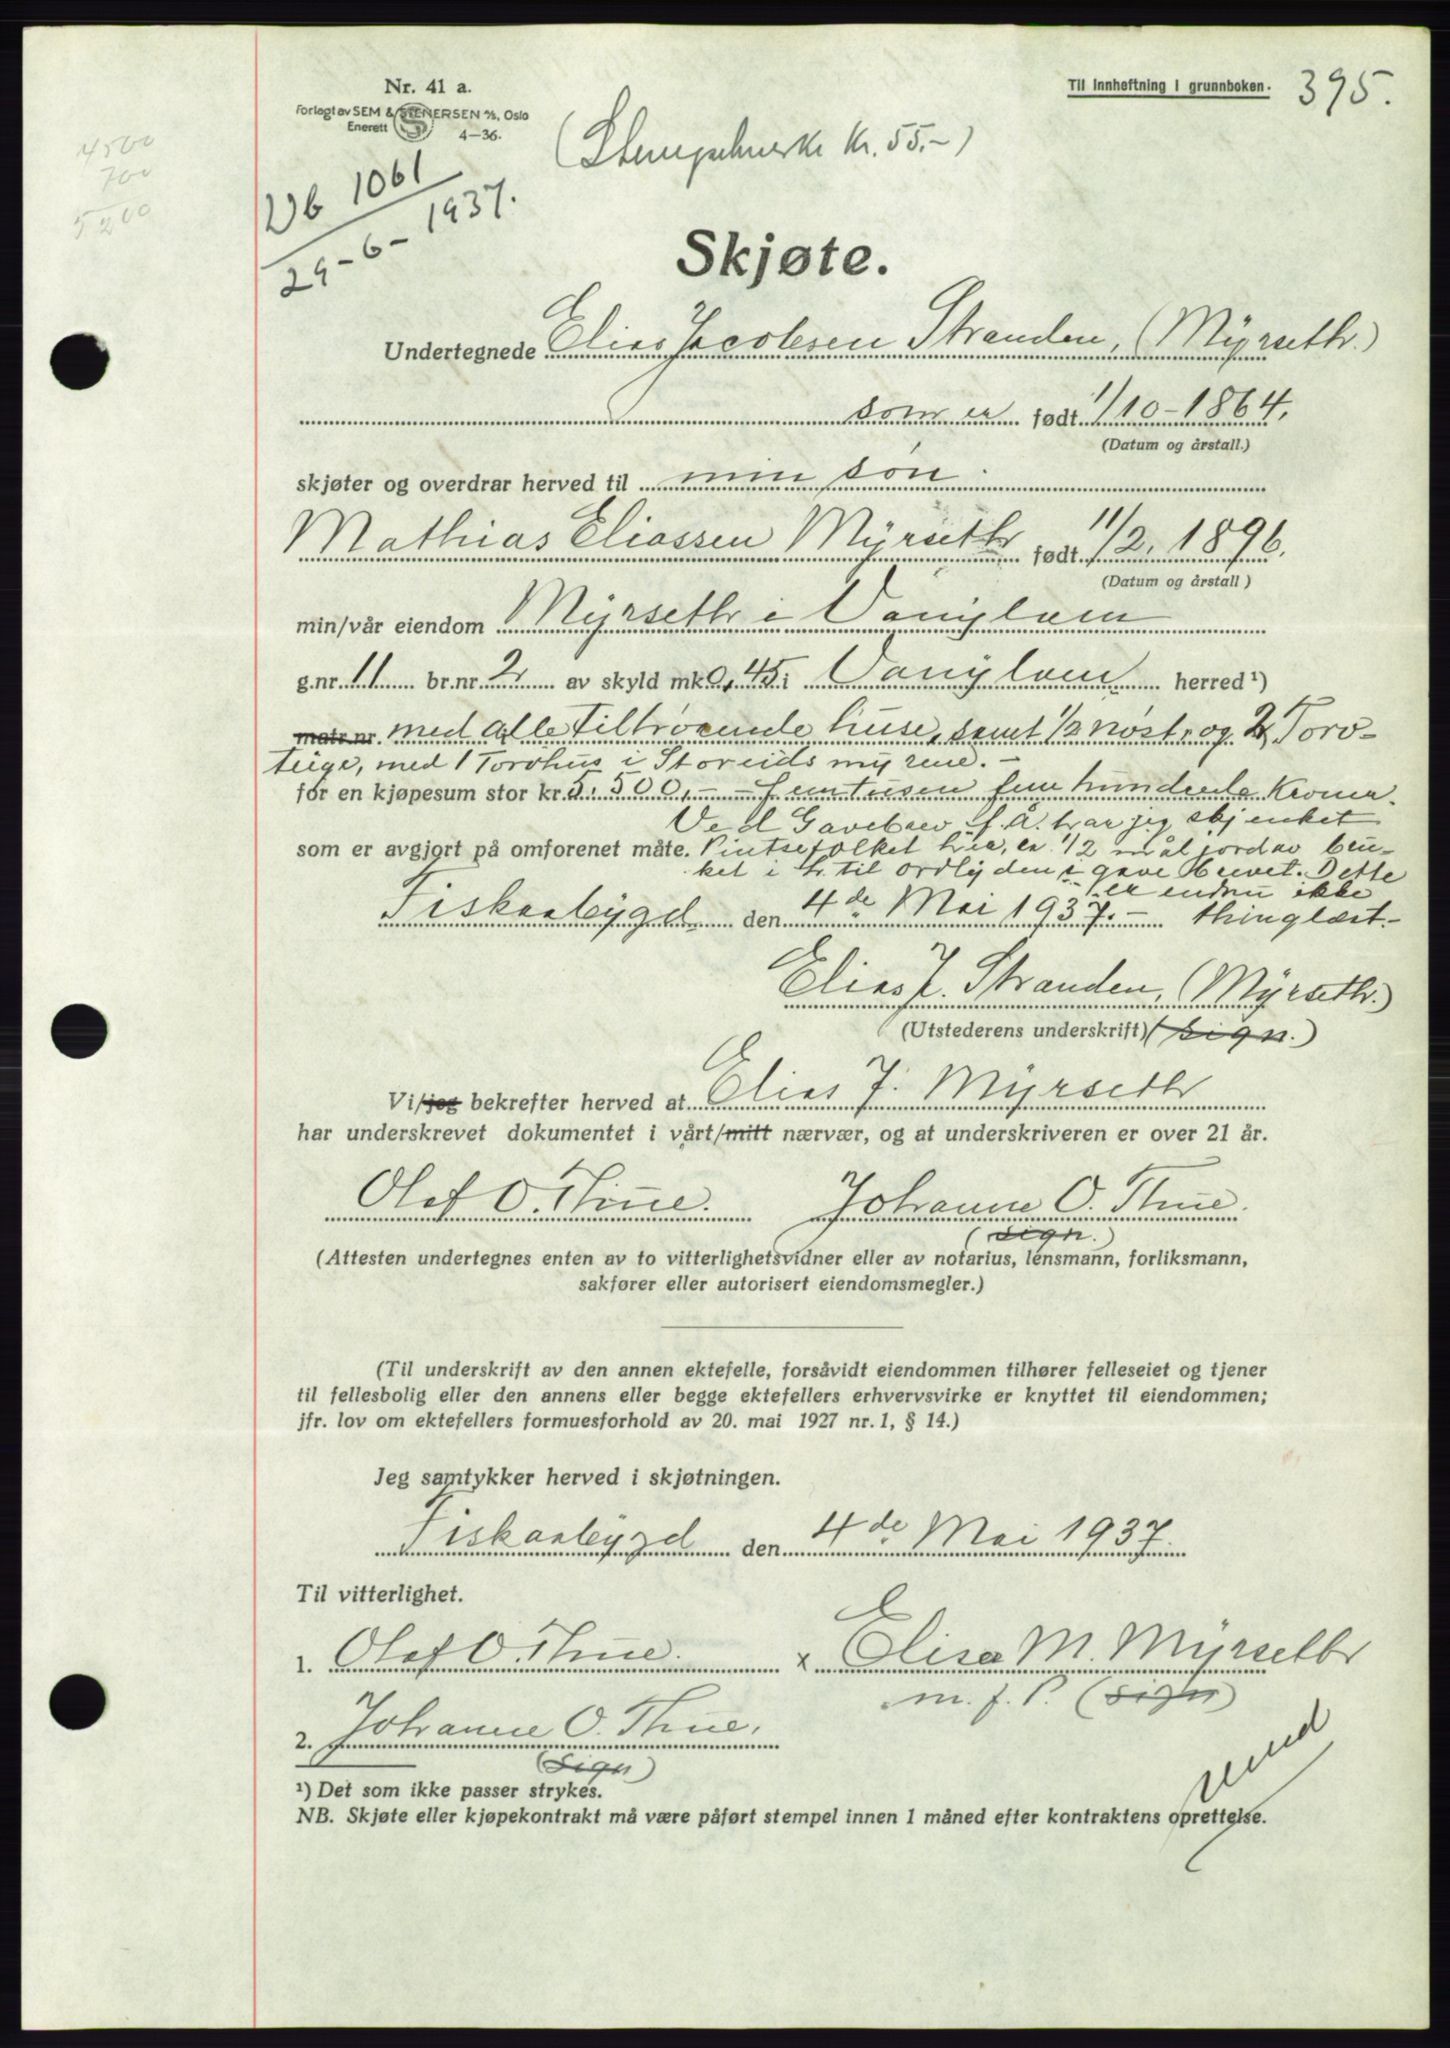 Nr. 41 a.
Forlagt av SEM & STENERSEN A/S, Oslo
Enerett 4—36.
Til innheftning i grunnboken. 395.
4500
700
5200
(Stempelmerke Kr. 55.-)
Db 1061
29-6-1937.
Skjøte.
Undertegnede Elias Jacobsen Stranden, (Myrseth.)
som er født 1/10-1864.
(Datum og årstall.)
skjøter og overdrar herved til min søn.
Mathias Eliassen Myrseth født 11/2. 1896.
(Datum og årstall)
min/vår eiendom Myrseth i Vanylven
g.nr. 11 br.nr. 2 av skyld mk 0,45 i Vanylven herred ¹)
matr.nr. med alle tilhørende huse, samt 1/2 nøst, og 2 Torv-
teige, med 1 Torvhus i Storeidsmyrene. -
for en kjøpesum stor kr. 5.500,- - femtusen fem hundrede Kroner.
Ved Gavebrev f. Å. har jeg skjenket
som er avgjort på omforenet måte. Pintsefolket her, ca. 1/2 mål jord av bru-
ket i h. til ordlyden i gave brevet. Dette
er endnu ikke
Fiskaabygd den 4de Mai 1937. - thinglæst.-
Elias J. Stranden, (Myrseth.)
(Utstederens underskrift) (sign.)
Vi/jeg bekrefter herved at Elias J. Myrseth
har underskrevet dokumentet i vårt/mitt nærvær, og at underskriveren er over 21 år.
Olaf O. Thue. Johanne O. Thue.
(sign.)
(Attesten undertegnes enten av to vitterlighetsvidner eller av notarius, lensmann, forliksmann,
sakfører eller autorisert eiendomsmegler.)
(Til underskrift av den annen ektefelle, forsåvidt eiendommen tilhører felleseiet og tjener
til fellesbolig eller den annens eller begge ektefellers erhvervsvirke er knyttet til eiendommen;
jfr. lov om ektefellers formuesforhold av 20. mai 1927 nr. 1, § 14.)
Jeg samtykker herved i skjøtningen.
Fiskaabygd den 4de Mai 1937.
Til vitterlighet.
1. Olaf O. Thue. x Elisa M. Myrseth
m. f. P. (sign)
2. Johanne O. Thue.
(sign)
¹) Det som ikke passer strykes.
NB. Skjøte eller kjøpekontrakt må være påført stempel innen 1 måned efter kontraktens oprettelse.